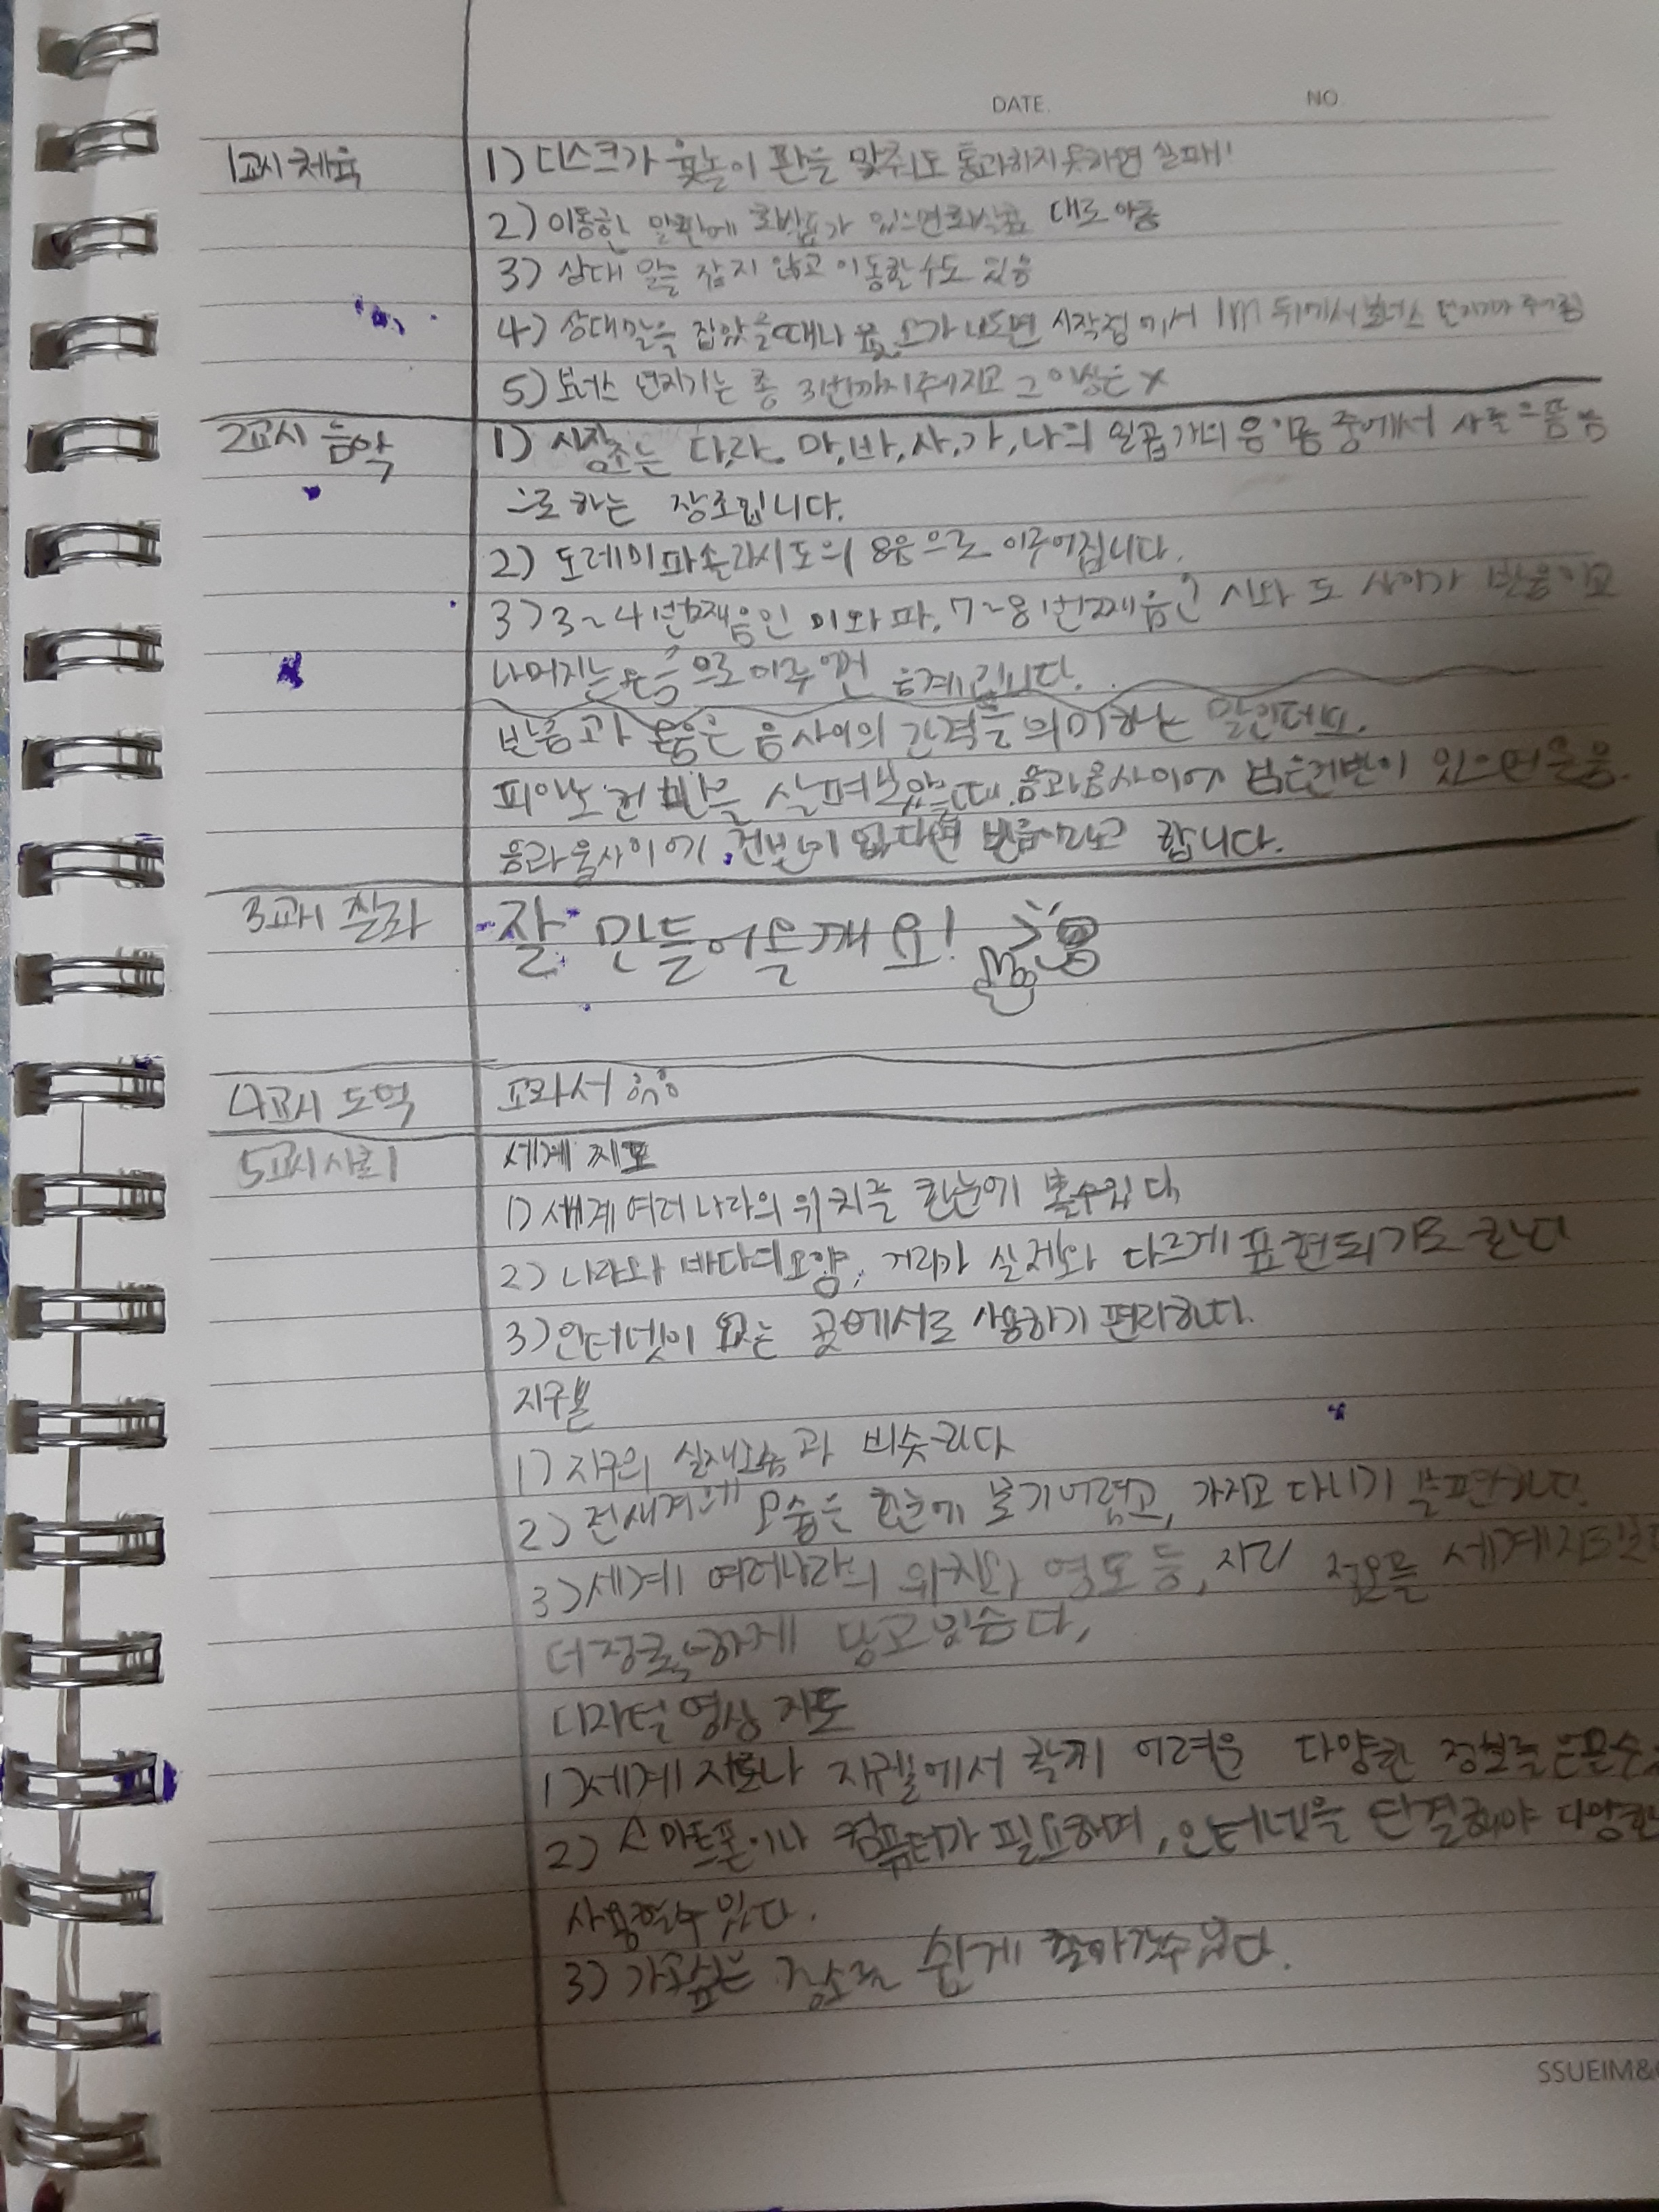 DATE. NO
1교시 체육
1) 디스크가 윷놀이 판을 맞춰도 통과하지못하면 실패!
2) 이동한 말판에 화살표가 있으면화살표 대로 이동
3) 상대 말을 잡지 않고 이동할수도 있음
4) 상대말을 잡았을때나 윷,모가 나오면 시작점에서 1m 뒤에서 보너스 던지기가 주어짐
5) 보너스 던지기는 총 3번까지주어지고 그 이상은 X
2교시 음악
1) 는 다,라,마,바,사,가,나의 일곱개의 음이름 중에서 사로 으뜸음
으로 하는 장조입니다.
2) 도레미파솔라시도의 8음으로 이루어집니다.
3) 3~4번째음인 미와파, 7~8번째음인 시와 도 사이가 반음이고
나머지는 온음으로이루어진 음계입니다.
반음과 온음은 음사이의 간격을의미하는 말인데요.
피아노 건반을 살펴보았을때 음과음사이에 검은건반이 있으면온음
음과음사이에 건반이 없다면 반음이라고 합니다.
3교시 창체
잘 만들어올게요!
4교시 도덕
교과서
5교시사회
세계 지도
1) 세계여러나라의위치를 한눈에 볼수있다
2) 나라와 바다의모양, 거리가 실제와 다르게 표현되기도 한다
3) 인터넷이 없는 곳에서도 사용하기 편리하다.
지구본
1) 지구의 실제모습과 비슷하다
2) 전세계의 모습을 한눈에 보기어렵고, 가지고 다니기 불편하다.
3) 세계 여러나라의 위치와 영토 등, 지리 정보를 세계지도보다
더정확하게 담고있습다,
디지털영상 지도
1) 세계 지도나 지구본에서 찾기 어려운 다양한 정보를
2) 스마트폰이나 컴퓨터가 필요하며, 인터넷을 연결해야 다양한
사용할수 있다.
3) 가고싶은 장소를 쉽게 찾아갈수있다.
SSUEIM&